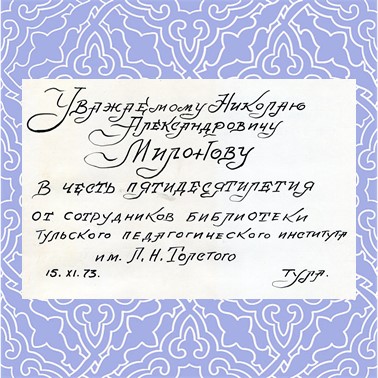 Уважаемому Николаю
Александровичу
Милонову
В честь пятидесятилетия
от сотрудников библиотеки
Тульского педагогического института
им. Л. Н. Толстого
15. XI. 73. Тула.